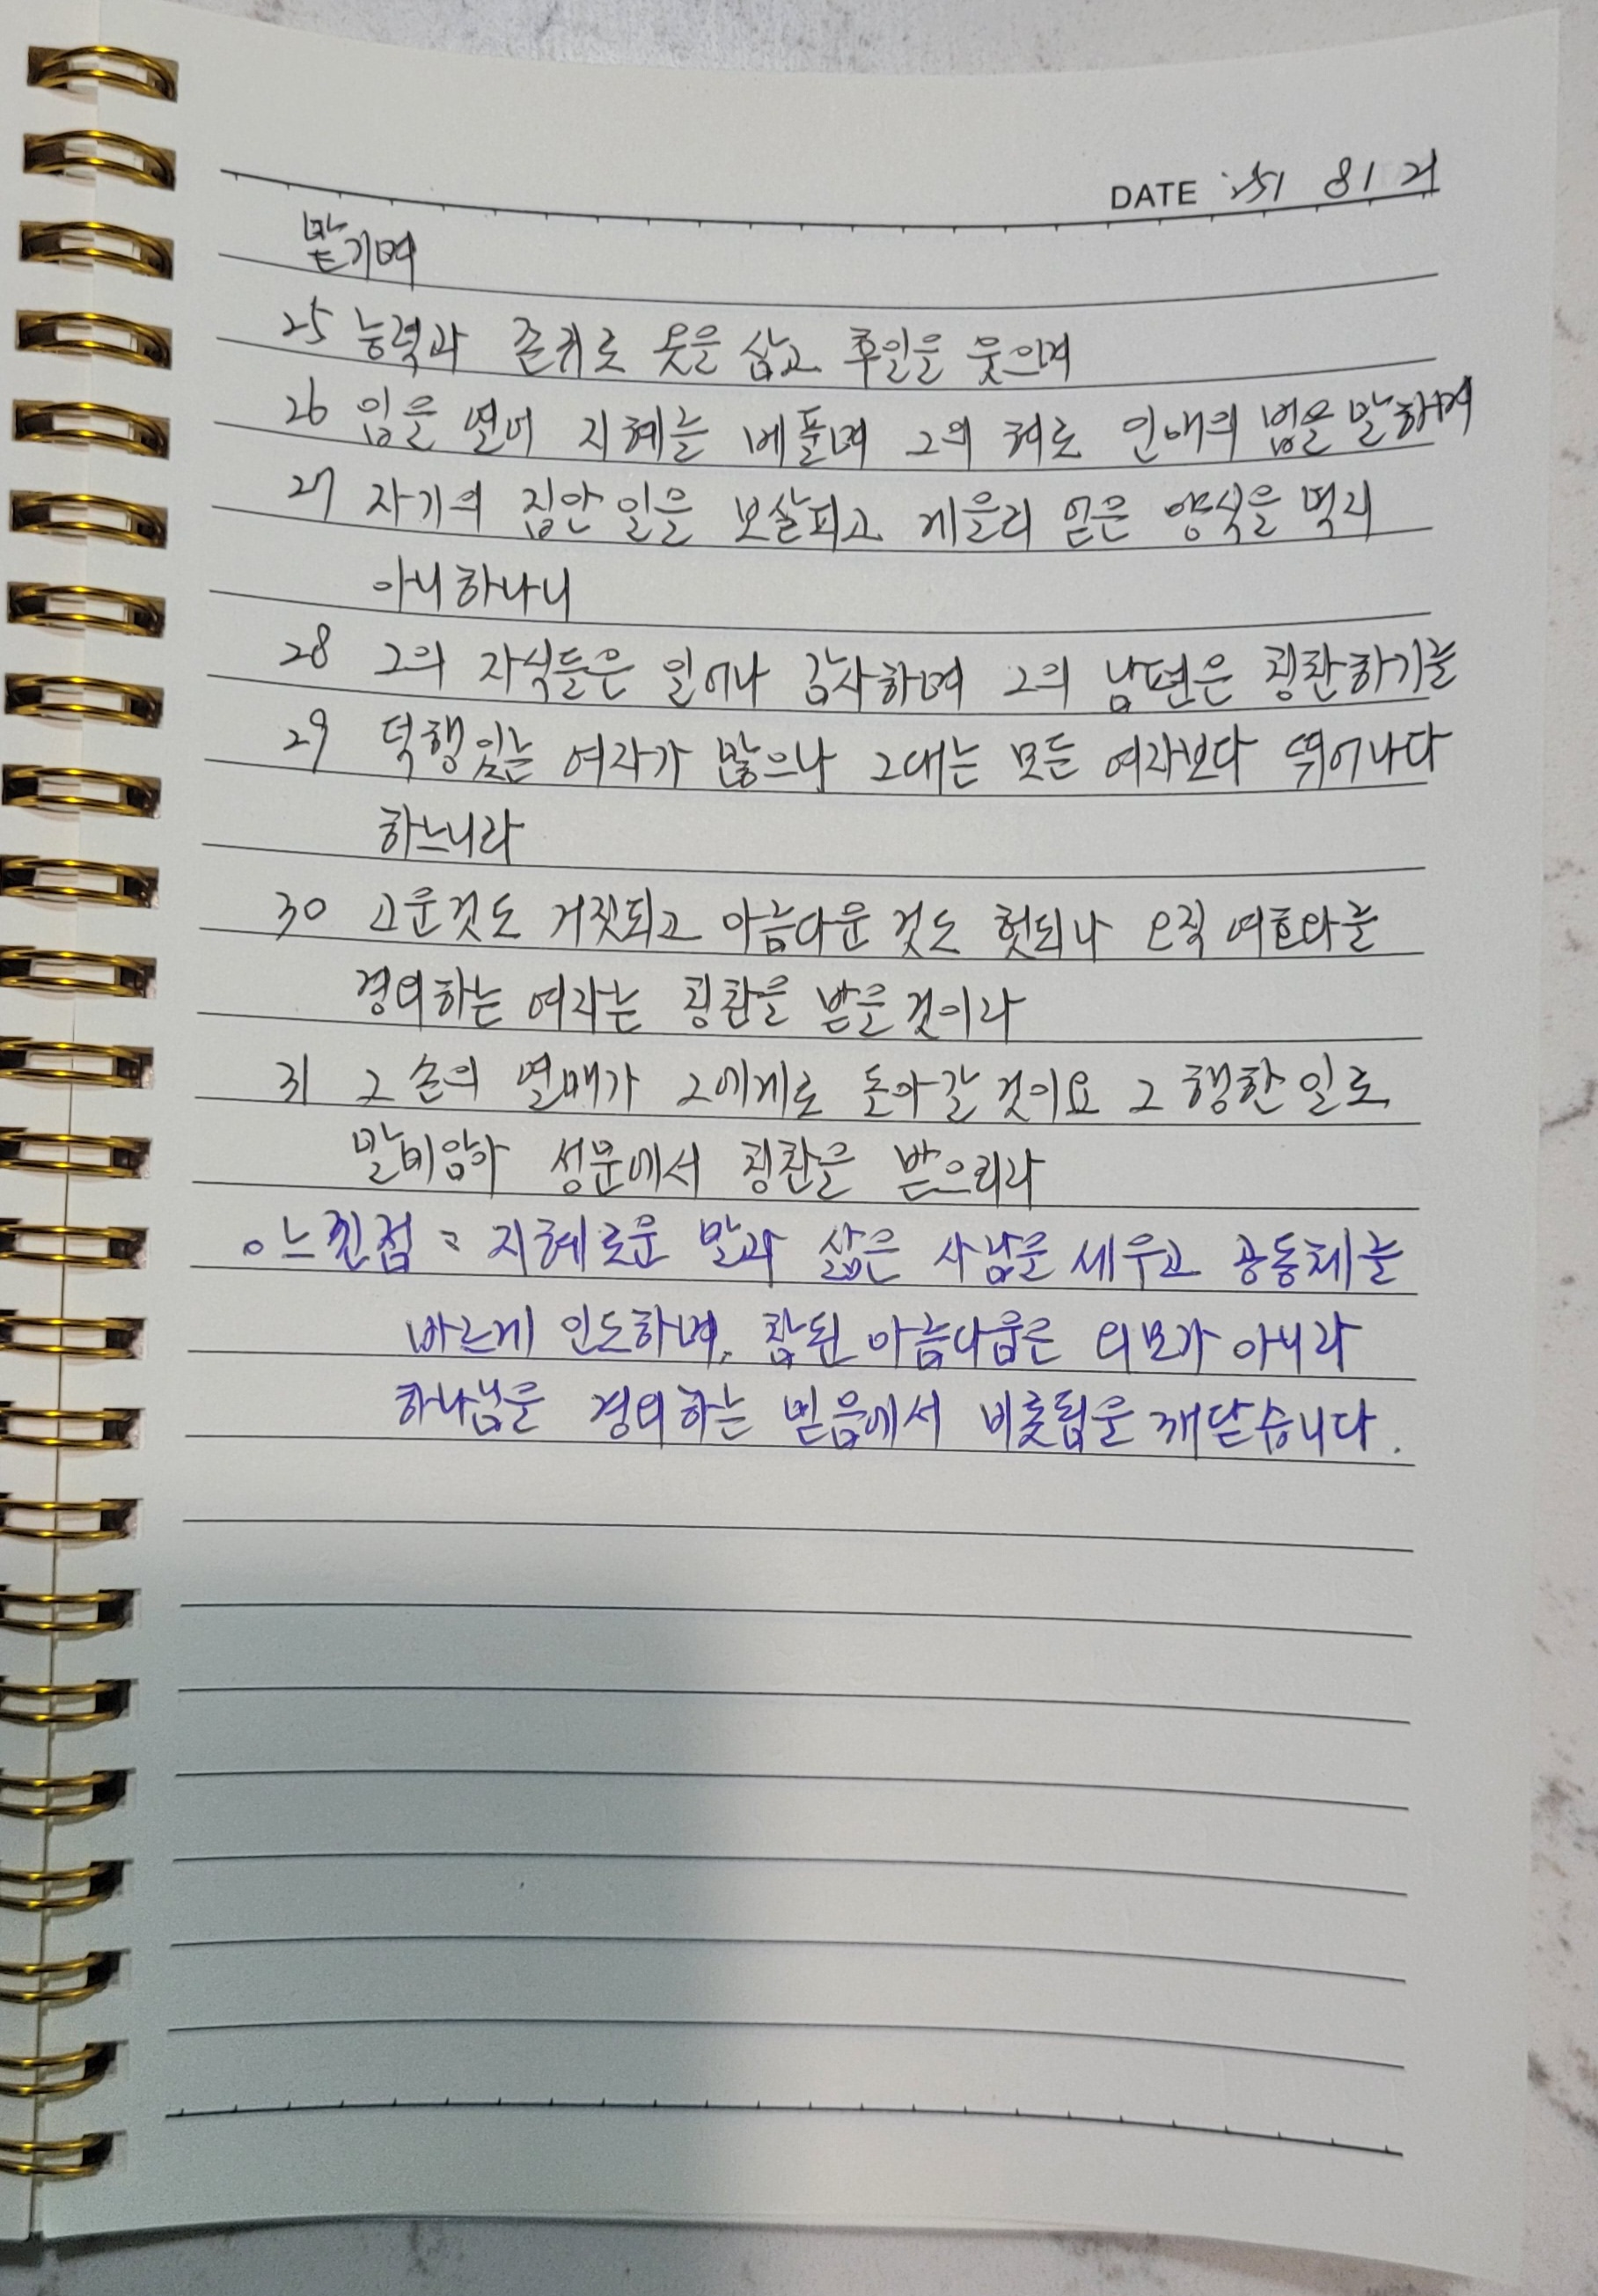 DATE '25/ 8/ 21
맡기며
25 능력과 존귀로 옷을 삼고 후일을 웃으며
26 입을 열어 지혜를 베풀며 그의 혀로 인애의 법을 말하며
27 자기의 집안 일을 보살피고 게을리 얻은 양식을 먹지
아니하나니
28 그의 자식들은 일어나 감사하며 그의 남편은 칭찬하기를
29 덕행있는 여자가 많으나 그대는 모든 여자보다 뛰어나다
하느니라
30 고운것도 거짓되고 아름다운 것도 헛되나 오직 여호와를
경외하는 여자는 칭찬을 받을 것이라
31 그 손의 열매가 그에게로 돌아갈 것이요 그 행한 일로
말미암아 성문에서 칭찬을 받으리라
○ 느낀점 = 지혜로운 말과 삶은 사람을 세우고 공동체를
바르게 인도하며, 참된 아름다움은 외모가 아니라
하나님을 경외하는 믿음에서 비롯됨을 깨닫습니다.